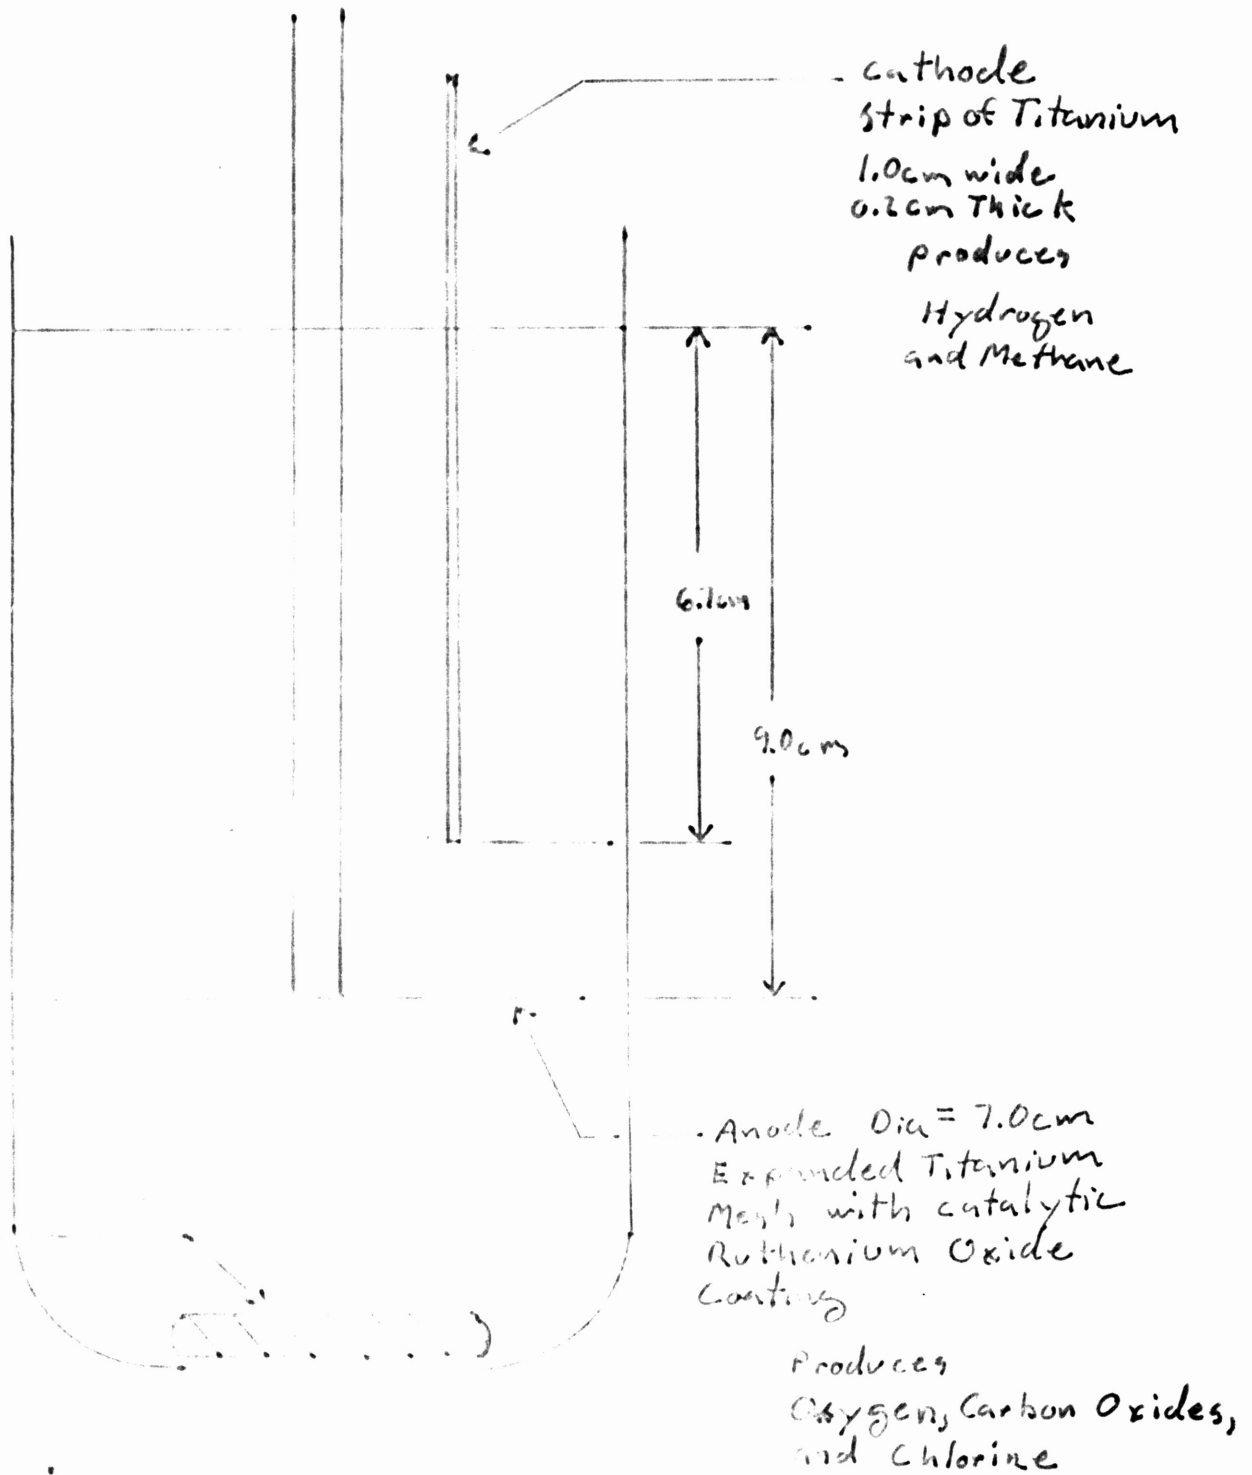 cathode
Strip of Titanium
1.0cm wide
0.2cm Thick
produces
Hydrogen
and Methane
9.0cm
Anode Dia = 7.0cm
Expanded Titanium
Mesh with catalytic
Ruthenium Oxide
Coating
Produces
Oxygen, Carbon Oxides,
and Chlorine